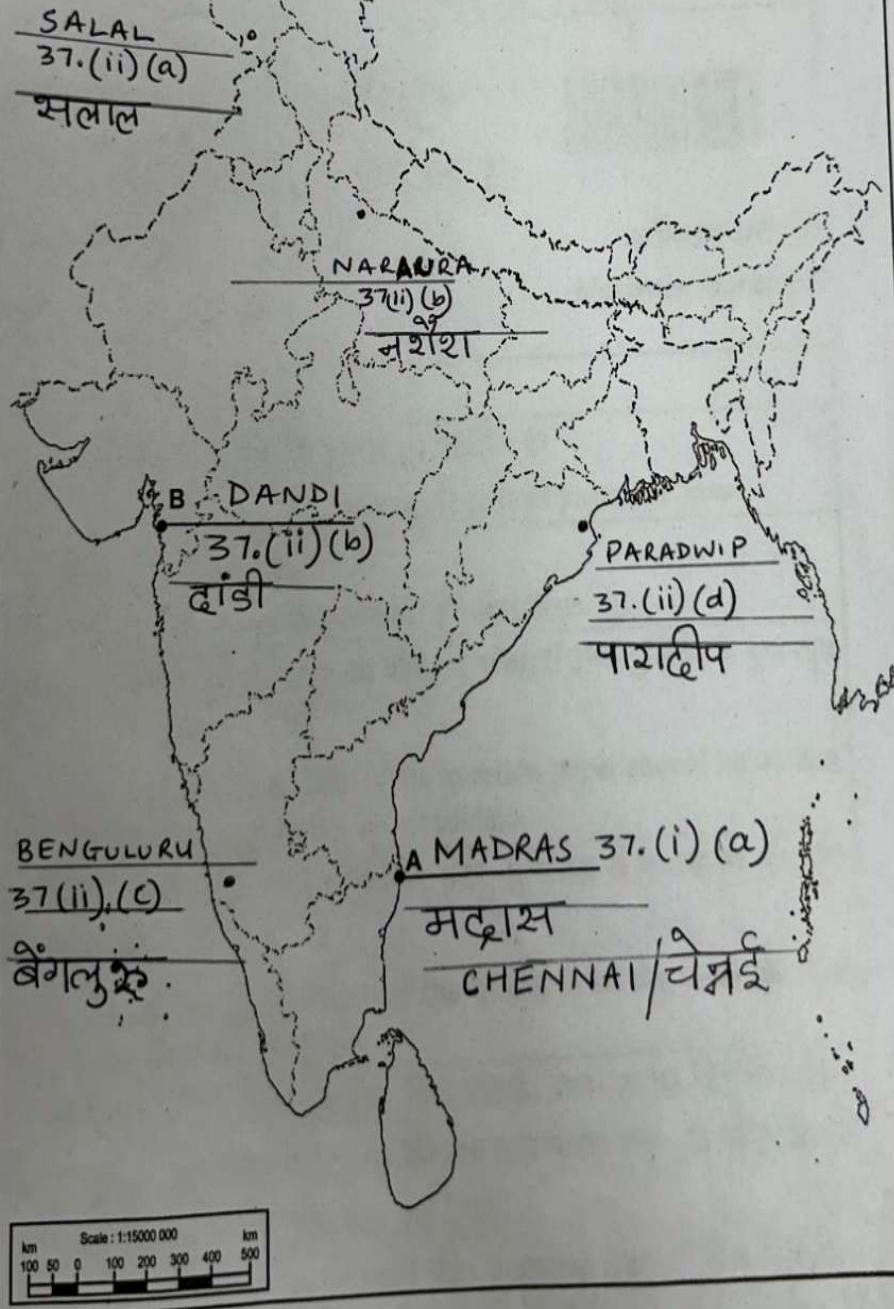 SALAL
37.(ii) (a)
सलाल
NARAURA
37(ii) (b)
नरौरा
B DANDI
37.(ii) (b)
दांडी
PARADWIP
37.(ii) (d)
पारादीप
BENGULURU
37(ii).(c)
बेंगलुरू
A MADRAS 37.(i) (a)
मद्रास
CHENNAI/चेन्नई
Scale : 1:15000 000
km km
100 50 0 100 200 300 400 500